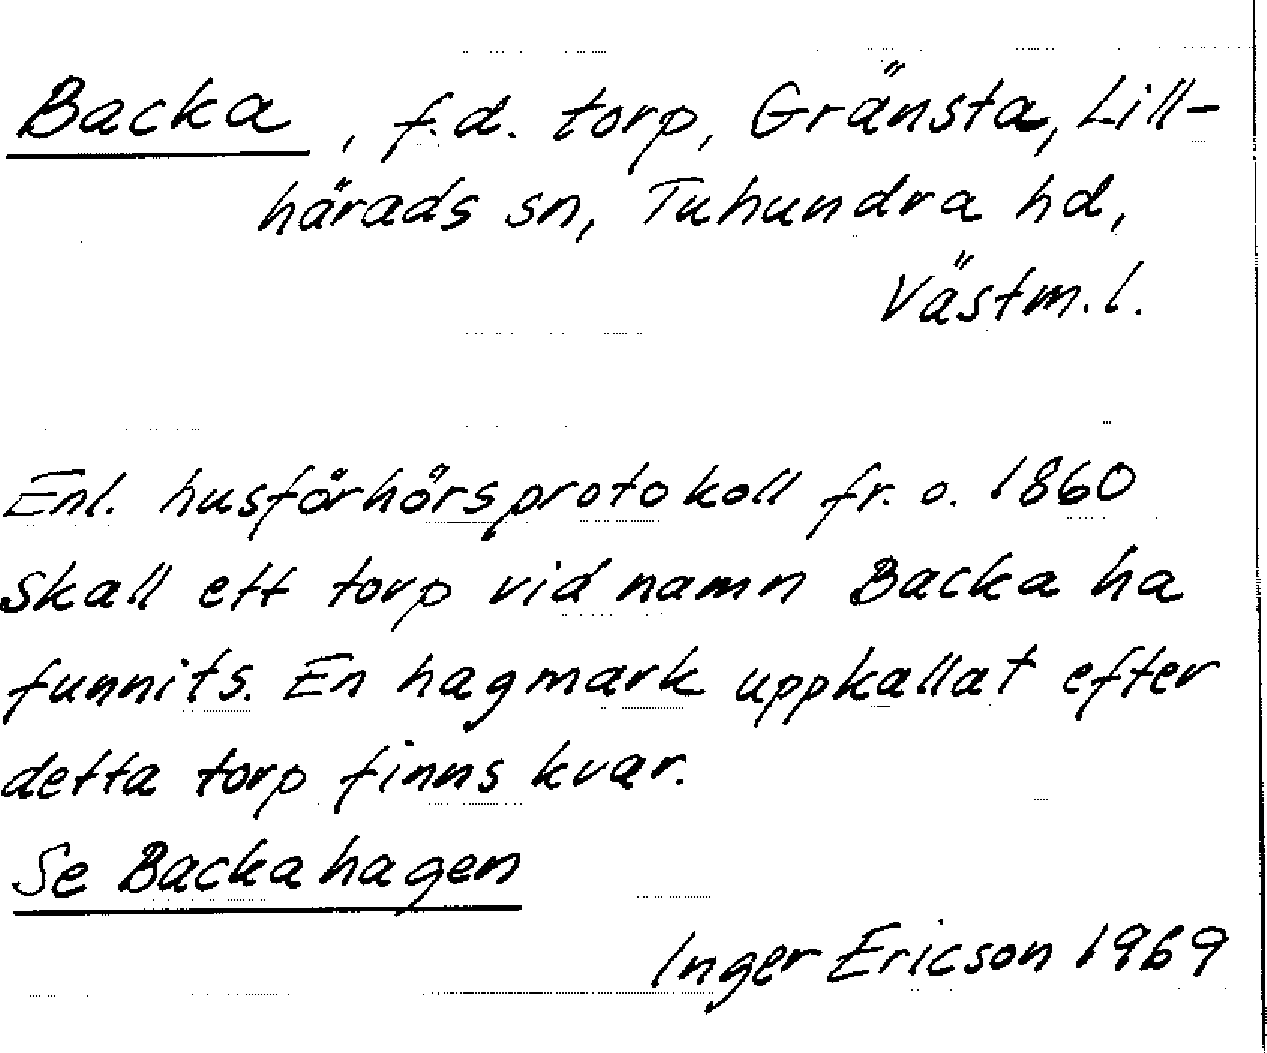 Backa, f.d. torp, Gränsta, Lill-
härads sn, Tuhundra hd,
Västm.l.
Enl. husförhörsprotokoll fr. o. 1860
skall ett torp vid namn Backa ha
funnits. En hagmark uppkallat efter
detta torp finns kvar.
Se Backahagen
Inger Ericson 1969